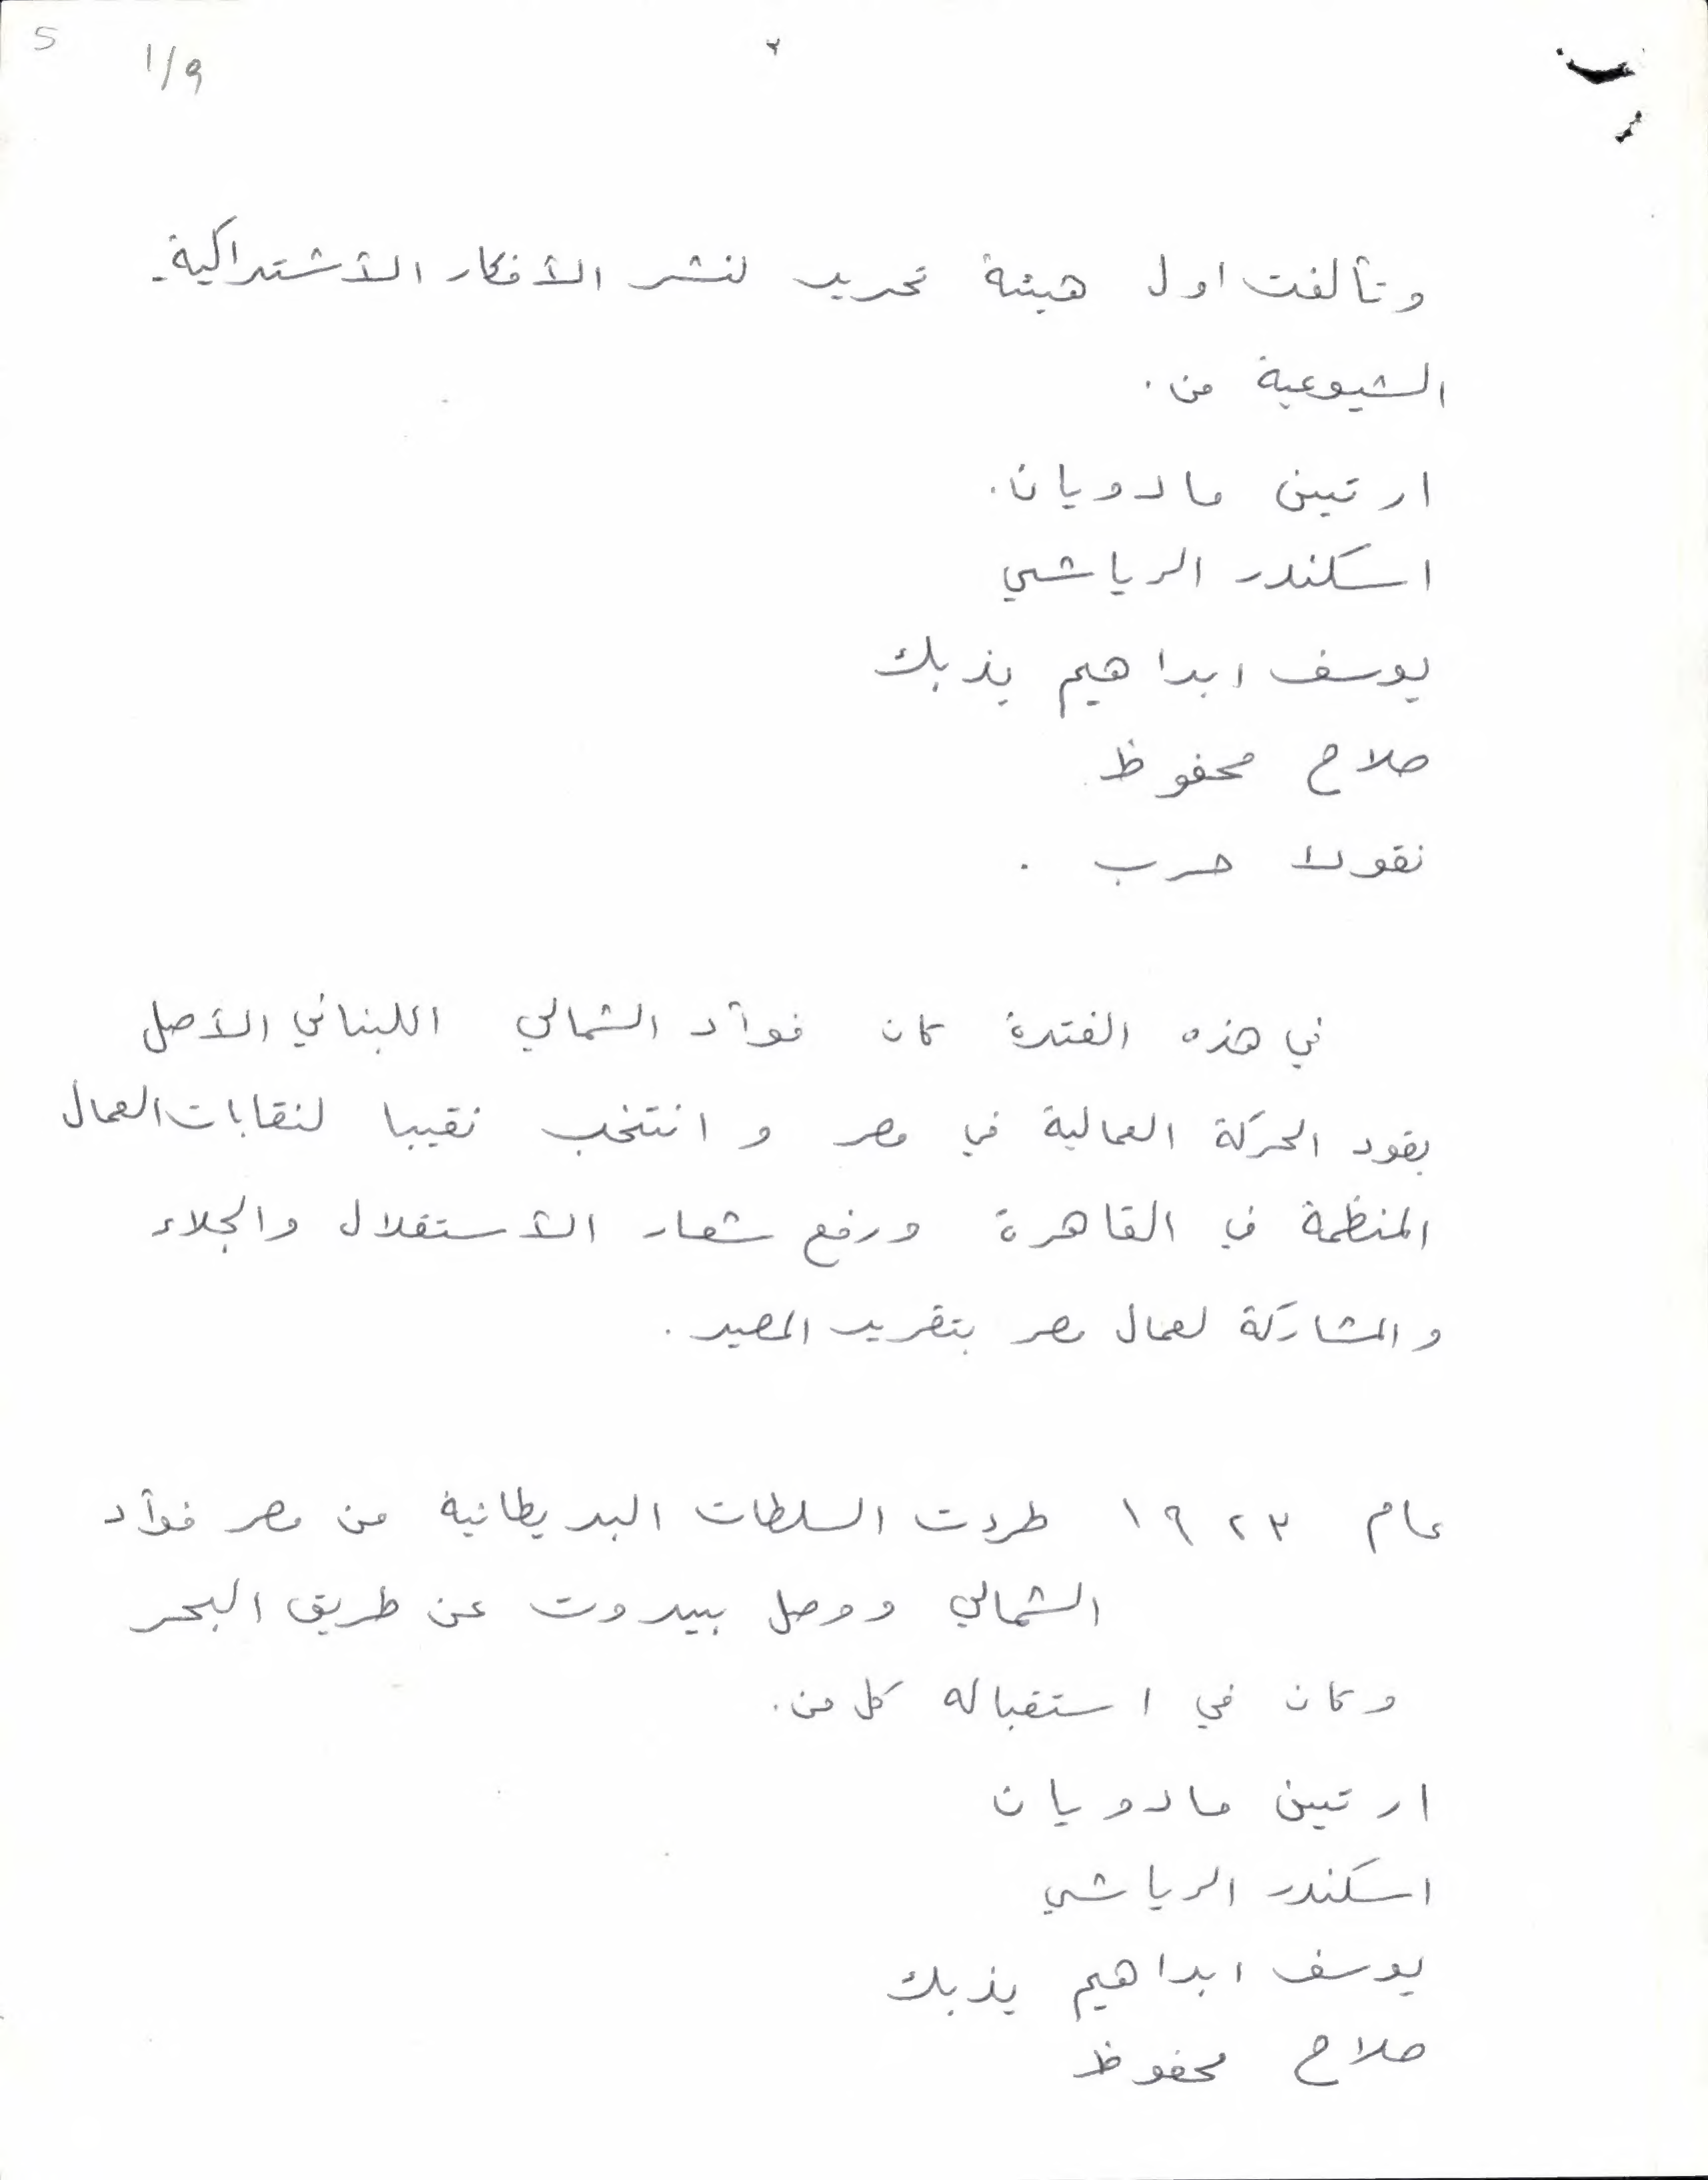 5
1/9
٢
وتألفت اول هيئة تحرير لنشر الأفكار الأشتراكية -
الشيوعية من .
ارتين مادويان .
اسكندر الرياشي
يوسف ابراهيم يزبك
صلاح محفوظ
نقولا حرب .
في هذه الفترة كان فوأد الشمالي اللبناني الأصل
يقود الحركة العمالية في مصر و انتخب نقيبا لنقابات العمال
المنظمة في القاهرة ورفع شعار الأستقلال والجلاء
والمشاركة لعمال مصر بتقرير المصير .
عام ١٩٢٣ طردت السلطات البريطانية من مصر فوأد
الشمالي ووصل بيروت عن طريق البحر
وكان في استقباله كل من .
ارتين مادويان
اسكندر الرياشي
يوسف ابراهيم يزبك
صلاح محفوظ